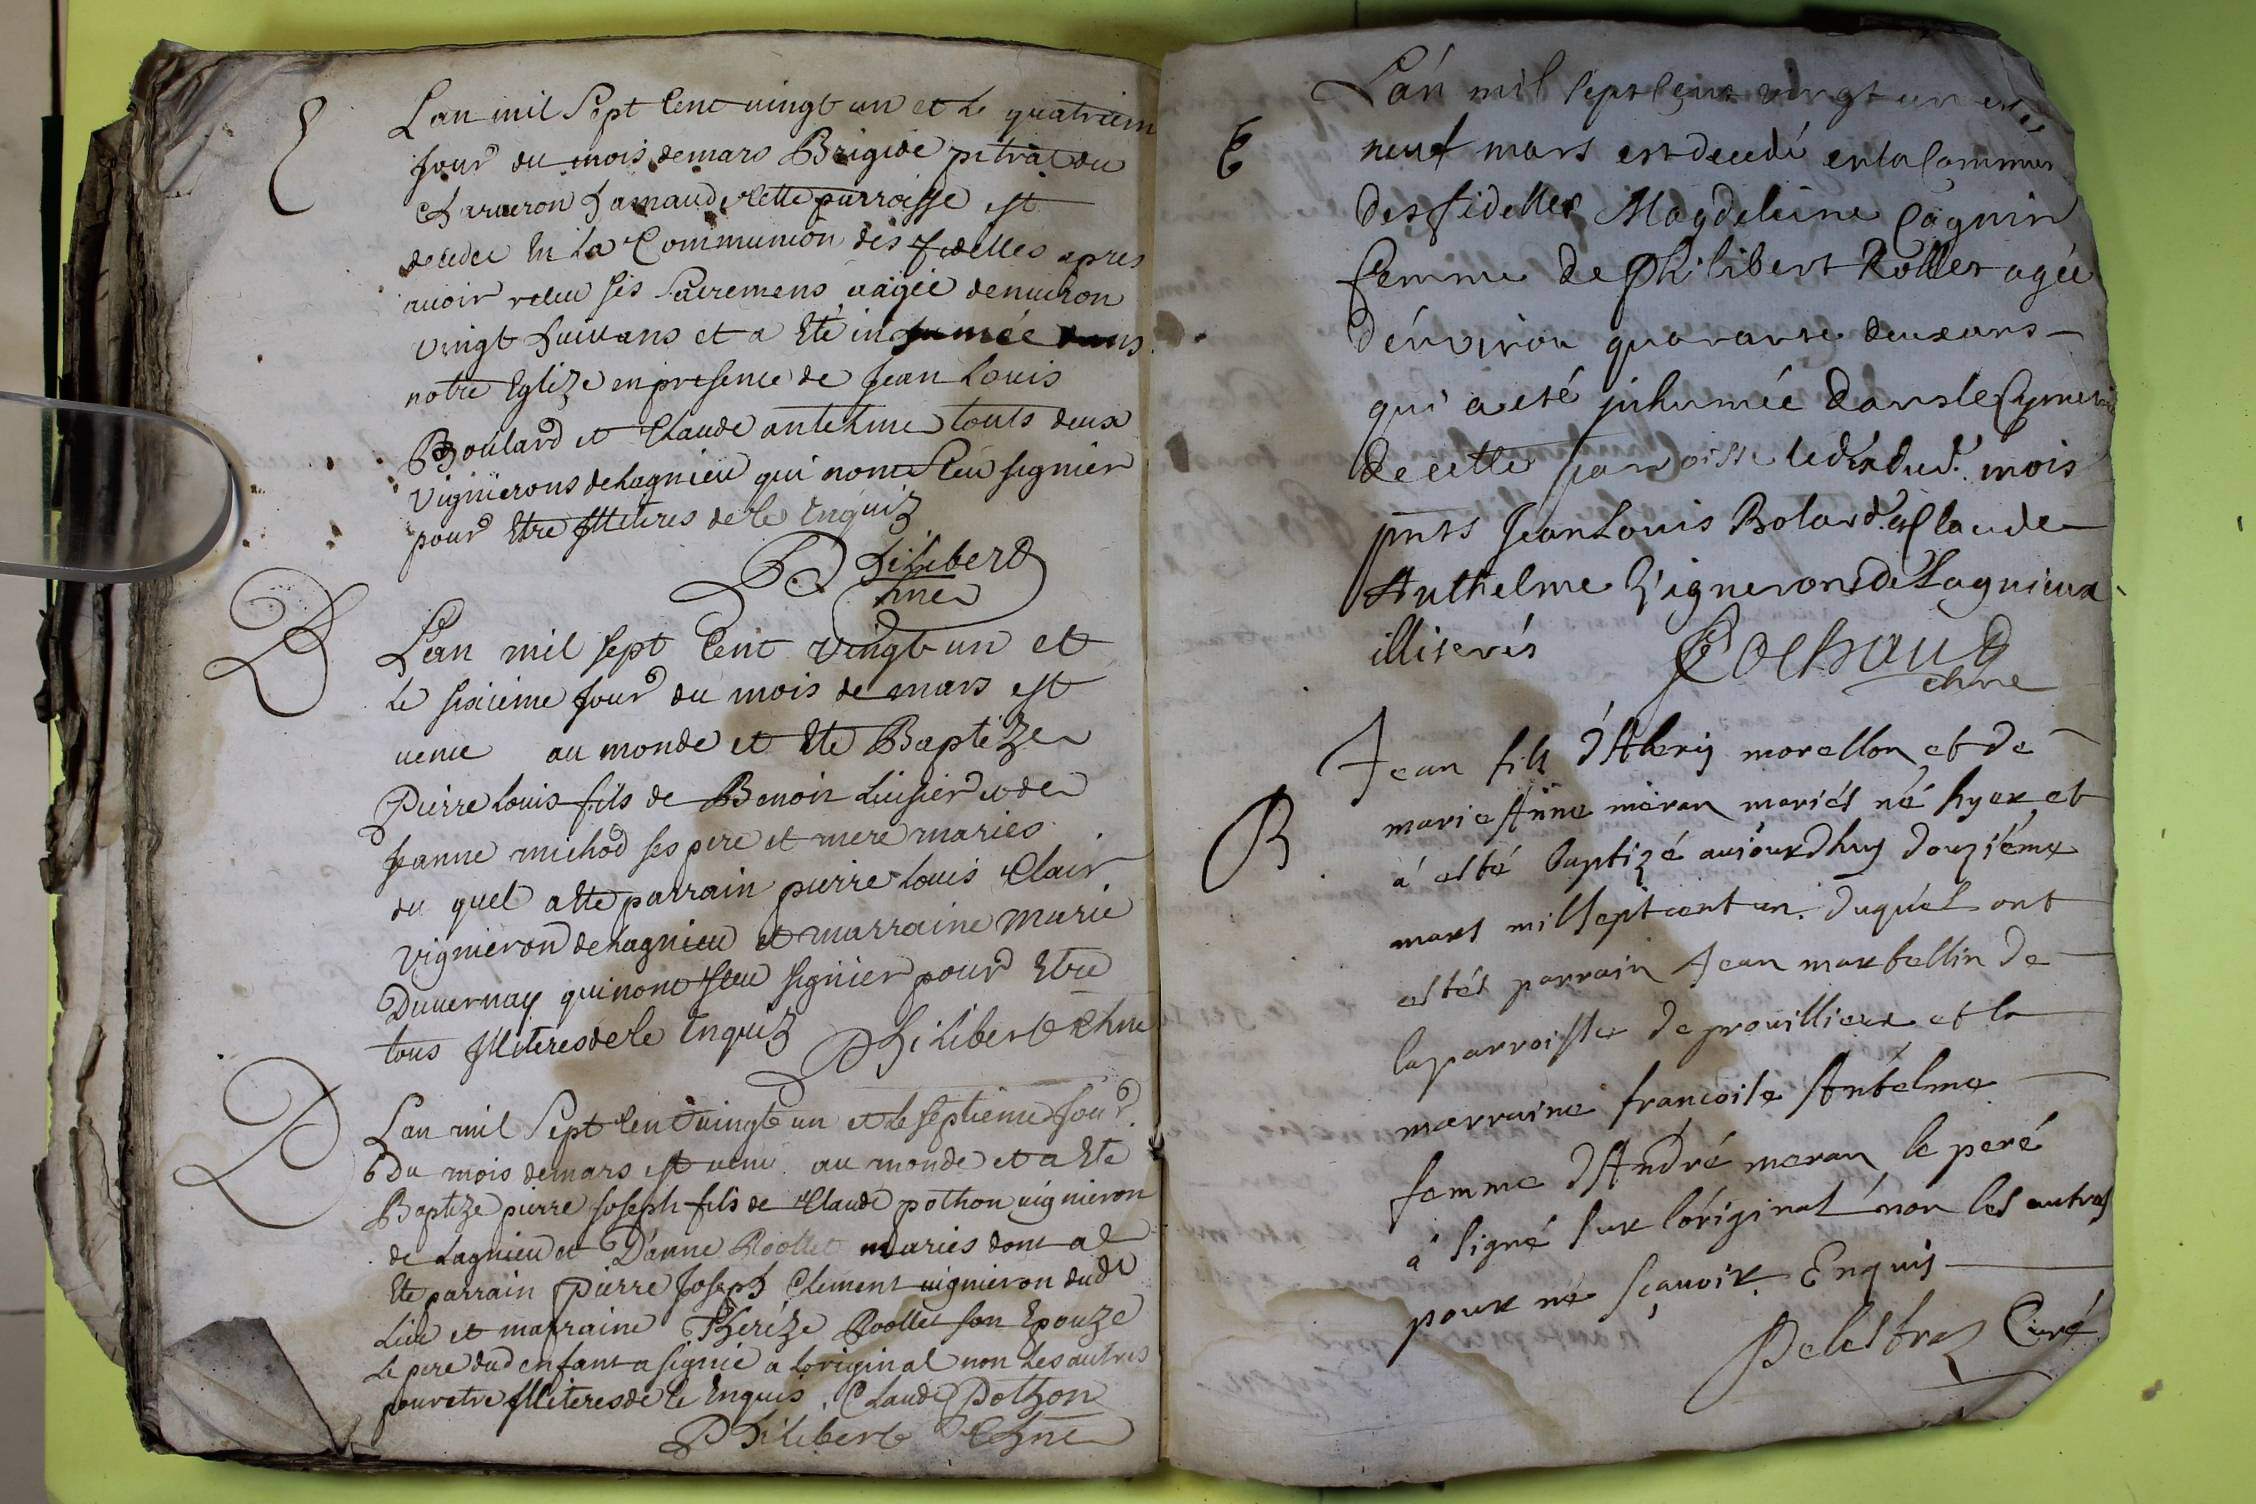 E
Lan mil Sept Cent uingt un et le quatriem
Jour du mois de mars Brigide pitrat du
Charueron Darnaud cette parroisse est
decedee En La Communion des fidelles apres
auoir receu ses Sacremens aagée denuiron
vingt huit ans et a Eté inhumée dans
notre Eglize en presence de Jean Louis
Boulard et Claude antelme touts deux
vignierons de Lagnieu qui nont Sceu signier
pour Etre Illiteres de le Enquiz
Philibert
chne
B
Lan mil sept Cent vingt un et
Le sixieme Jour du mois de mars est
uenu au monde et Ete Baptize
Pierre Louis fils de Benoit et de
Jeanne michod ses pere et mere maries
du quel a Ete parrain pierre Louis Clair
vignieron de Lagnieu et marraine Marie
Duuernay qui nont sceu signier pour Etre
tous Illiteres de le Enquiz Philibert Chne
B
Lan mil Sept Cent uingt un et le septieme Jour
Du mois de mars est uenu au monde et a Ete
Baptize pierre Joseph fils de Claude pothon uignieron
de Lagnieu et D'anne Roollet maries dont a
Ete parrain Pierre Joseph Clement uignieron dudt
Lieu et marraine Thereze Roollet son Epouze
Le pere dud enfant a signié a Loriginal non Les autres
pour etre Illiteres de le Enquis. Claude Pothon
Philibert Chne
E
L'an mil sept cent vingt un et le
neuf mars est decedé en la Commun
des fidelles Magdeleine Cagnin
femme de Philibert Rollet agée
d'environ quarante deux ans
qui a eté inhumée dans le Cymetie
de cette parroisse le dix dud. mois
pnts Jean Louis Bolard et Claude
Anthelme Vignerons de Lagnieux
illiterés Cochaud
chne
B
Jean fils d'Alexis morellon et de
marie Anne meran mariés né hyer et
à esté baptizé aujourdhuy douziéme
mars mil sept cent un. duquel ont
estés parrain Jean marc bellin de
la parroisse de prouillieux et la
marraine francoise Antelme
femme d'André meran le peré
a signé sur l'original non les autres
pour né sçauoir Enquis
Delestraz Curé